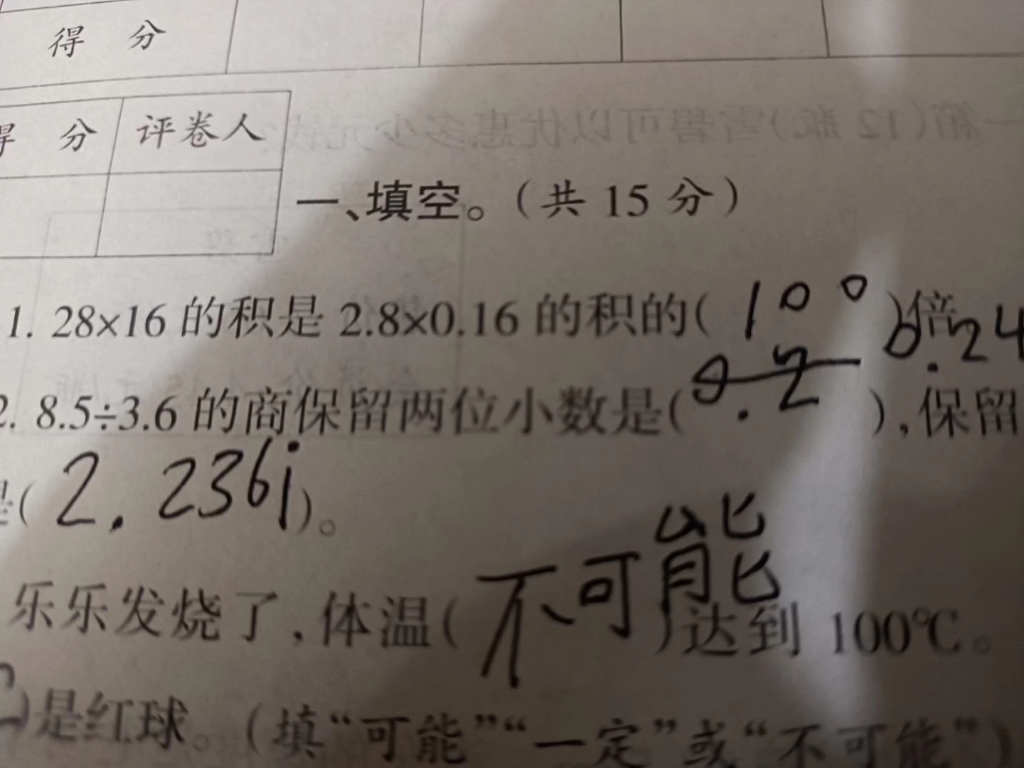 得 分
得 分 评卷人
一、填空。(共 15 分)
1. 28×16 的积是 2.8×0.16 的积的( 100 )倍
0.24
2. 8.5÷3.6 的商保留两位小数是( ), 保留
是( 2.236i )。
乐乐发烧了,体温( 不可能 )达到 100℃。
)是红球。(填“可能”“一定”或“不可能”)